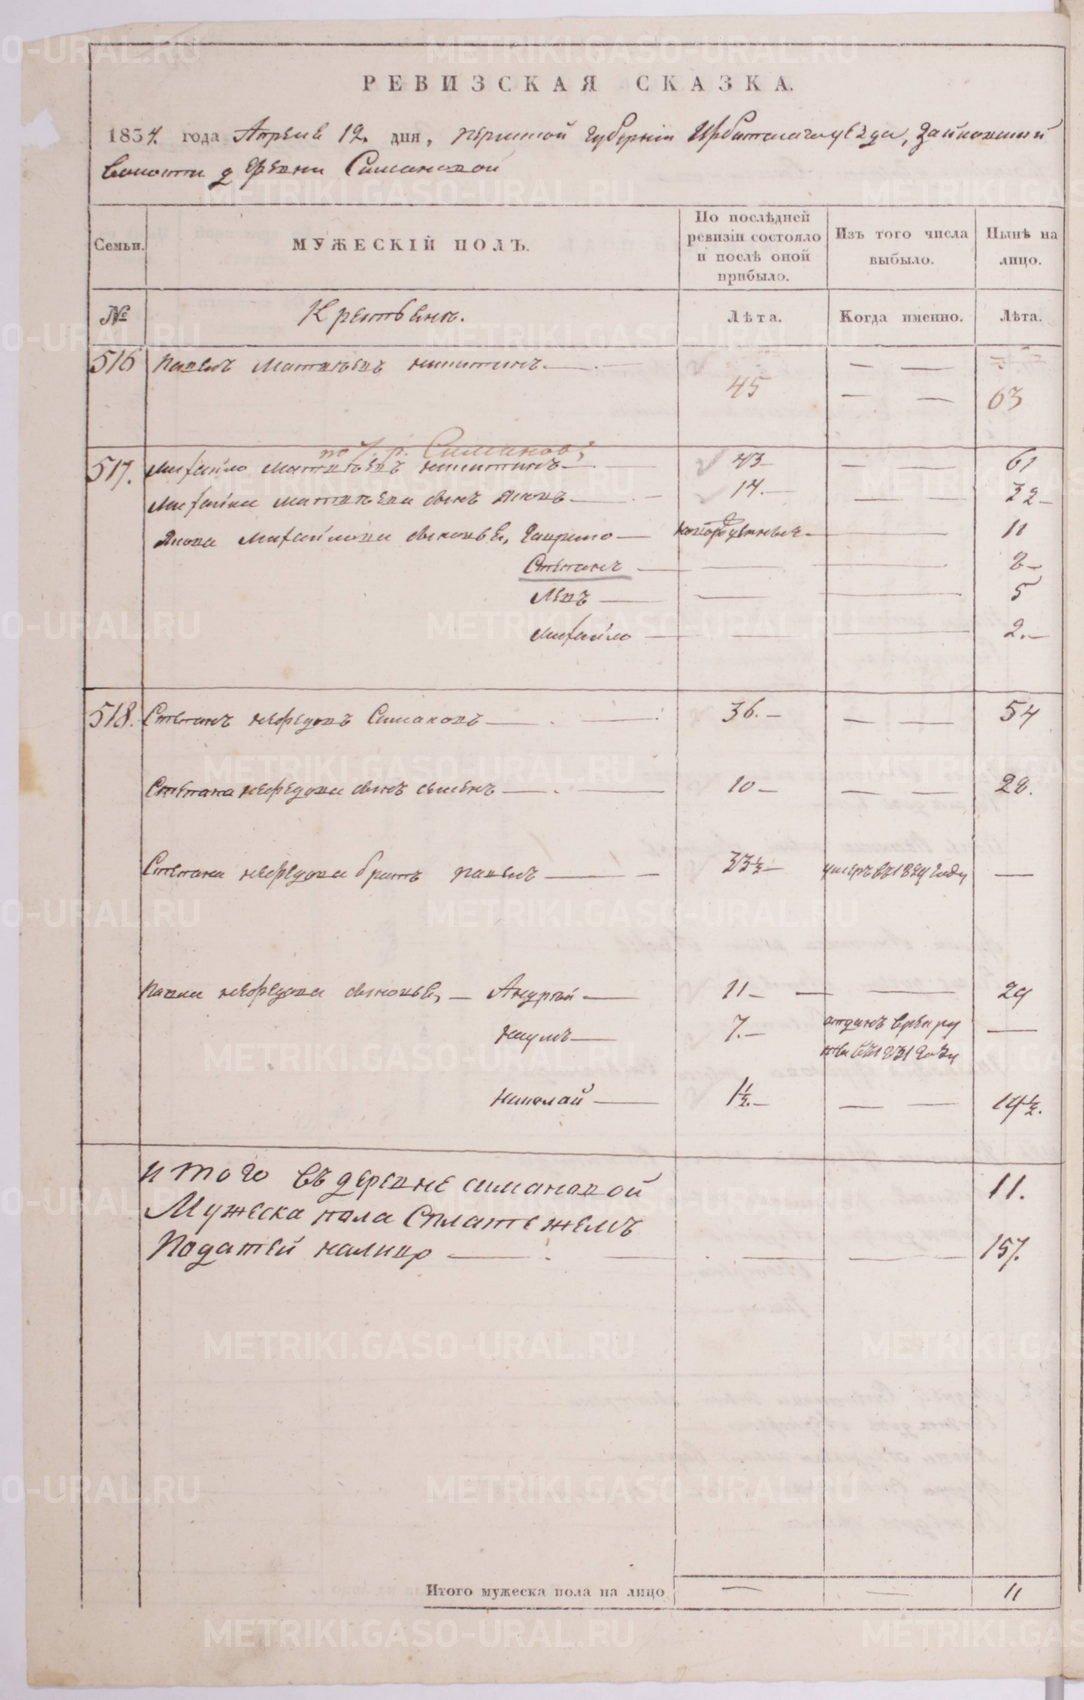 РЕВИЗСКАЯ СКАЗКА.
1834 года Апреля 12 дня, Пермской Губернии Ирбитскаго уезда, Зайковской
волости деревни Симановой
Семьи.
МУЖЕСКІЙ ПОЛЪ.
По послѣдней ревизіи состояло и послѣ оной прибыло.
Изъ того числа выбыло.
Нынѣ на лицо.
№
Крестьянъ.
Лѣта.
Когда именно.
Лѣта.
516 Павелъ Матвѣевъ Никитинъ 45 — — 63
по 7. р. Симановъ
517. Михайло Матвѣевъ Никитинъ 43 — 61
Михайла Матвѣева сынъ Яковъ 14. — 32
Якова Михайлова сыновья, Гаврило — новорожденные — 11
Степанъ — — — 8
Левъ — — — 5
Михайло — — — 2.
518. Степанъ Нефедовъ Симановъ 36. — — 54
Степана Нефедова сынъ Семенъ 10 — — 28.
Степана Нефедова братъ Павелъ 33½ умеръ въ 1824 году —
Павла Нефедова сыновья, — Андрей 11 — — 29
Наумъ 7. отданъ в рекруты в 1831 году —
Николай 1½. — — 19½.
Итого въ деревне Симановой 11.
Мужеска пола с платежемъ
Податей налицо — 157.
Итого мужеска пола на лицо — — 11
METRIKI.GASO-URAL.RU